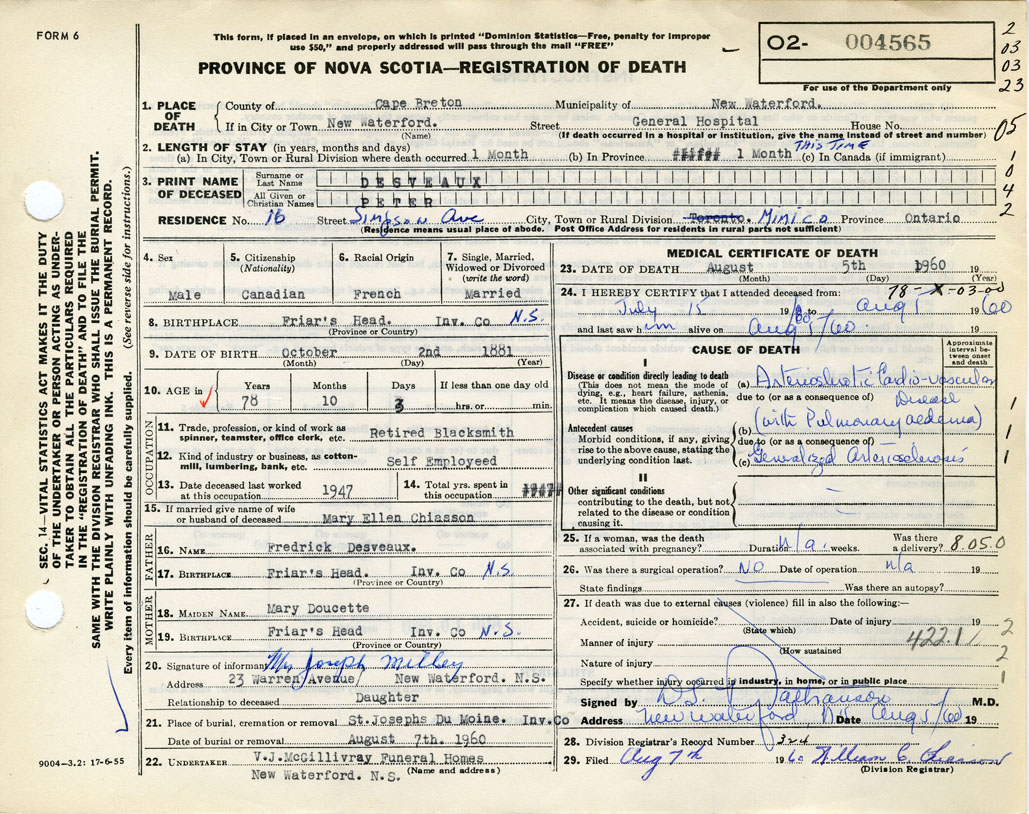 FORM 6
This form, if placed in an envelope, on which is printed "Dominion Statistics—Free, penalty for improper
use $50," and properly addressed will pass through the mail "FREE"
O2- 004565
For use of the Department only
2
03
03
23
PROVINCE OF NOVA SCOTIA—REGISTRATION OF DEATH
1. PLACE OF DEATH County of Cape Breton Municipality of New Waterford.
If in City or Town New Waterford. Street General Hospital House No.
(Name) (If death occurred in a hospital or institution, give the name instead of street and number)
05
2. LENGTH OF STAY (in years, months and days)
(a) In City, Town or Rural Division where death occurred 1 Month (b) In Province 1 Month THIS TIME (c) In Canada (if immigrant)
1
0
4
2
3. PRINT NAME OF DECEASED
Surname or Last Name DESVEAUX
All Given or Christian Names PETER
RESIDENCE No. 16 Street Simpson Ave City, Town or Rural Division Toronto. Mimico Province Ontario
(Residence means usual place of abode. Post Office Address for residents in rural parts not sufficient)
4. Sex 5. Citizenship (Nationality) 6. Racial Origin 7. Single, Married, Widowed or Divorced (write the word)
Male Canadian French Married
8. BIRTHPLACE Friar's Head. Inv. Co N.S.
(Province or Country)
9. DATE OF BIRTH October 2nd 1881
(Month) (Day) (Year)
10. AGE in Years Months Days If less than one day old
78 10 3 hrs. or min.
OCCUPATION
11. Trade, profession, or kind of work as spinner, teamster, office clerk, etc. Retired Blacksmith
12. Kind of industry or business, as cotton-mill, lumbering, bank, etc. Self Employeed
13. Date deceased last worked at this occupation 1947 14. Total yrs. spent in this occupation
15. If married give name of wife or husband of deceased Mary Ellen Chiasson
FATHER
16. NAME Fredrick Desveaux.
17. BIRTHPLACE Friar's Head. Inv. Co N.S.
(Province or Country)
MOTHER
18. MAIDEN NAME Mary Doucette
19. BIRTHPLACE Friar's Head Inv. Co N.S.
(Province or Country)
20. Signature of informant Mrs Joseph Milley
Address 23 Warren Avenue New Waterford. N.S.
Relationship to deceased Daughter
21. Place of burial, cremation or removal St.Josephs Du Moine. Inv.Co
Date of burial or removal August 7th. 1960
22. UNDERTAKER V.J.McGillivray Funeral Homes
(Name and address)
New Waterford. N.S.
MEDICAL CERTIFICATE OF DEATH
23. DATE OF DEATH August 5th 1960 19
(Month) (Day) (Year)
78-X-03-00
24. I HEREBY CERTIFY that I attended deceased from:
July 15 19 60 to Aug 5 19 60
and last saw him alive on Aug 5/60. 19
CAUSE OF DEATH
Approximate interval between onset and death
I
Disease or condition directly leading to death
(This does not mean the mode of dying, e.g., heart failure, asthenia, etc. It means the disease, injury, or complication which caused death.)
(a) Arteriosclerotic Cardio-vascular
due to (or as a consequence of) Disease
(b) (with Pulmonary oedema)
Antecedent causes
Morbid conditions, if any, giving rise to the above cause, stating the underlying condition last.
due to (or as a consequence of)
(c) Generalized Arteriosclerosis
1
1
1
II
Other significant conditions
contributing to the death, but not related to the disease or condition causing it.
25. If a woman, was the death associated with pregnancy? Duration n/a. weeks. Was there a delivery? 8.05.0
26. Was there a surgical operation? NO Date of operation n/a 19
State findings Was there an autopsy?
27. If death was due to external causes (violence) fill in also the following:—
Accident, suicide or homicide? Date of injury 19
(State which)
Manner of injury 422.1
(How sustained
Nature of injury
2
2
1
Specify whether injury occurred in industry, in home, or in public place
Signed by M.D.
Address New Waterford, NS Date Aug 5/60 19
28. Division Registrar's Record Number 324
29. Filed Aug 7th 1960 William C. Chiasson
(Division Registrar)
SEC. 14—VITAL STATISTICS ACT MAKES IT THE DUTY
OF THE UNDERTAKER OR PERSON ACTING AS UNDER-
TAKER TO OBTAIN ALL THE PARTICULARS REQUIRED
IN THE "REGISTRATION OF DEATH" AND TO FILE THE
SAME WITH THE DIVISION REGISTRAR WHO SHALL ISSUE THE BURIAL PERMIT.
WRITE PLAINLY WITH UNFADING INK. THIS IS A PERMANENT RECORD.
Every item of information should be carefully supplied. (See reverse side for instructions.)
9004—3.2: 17-6-55